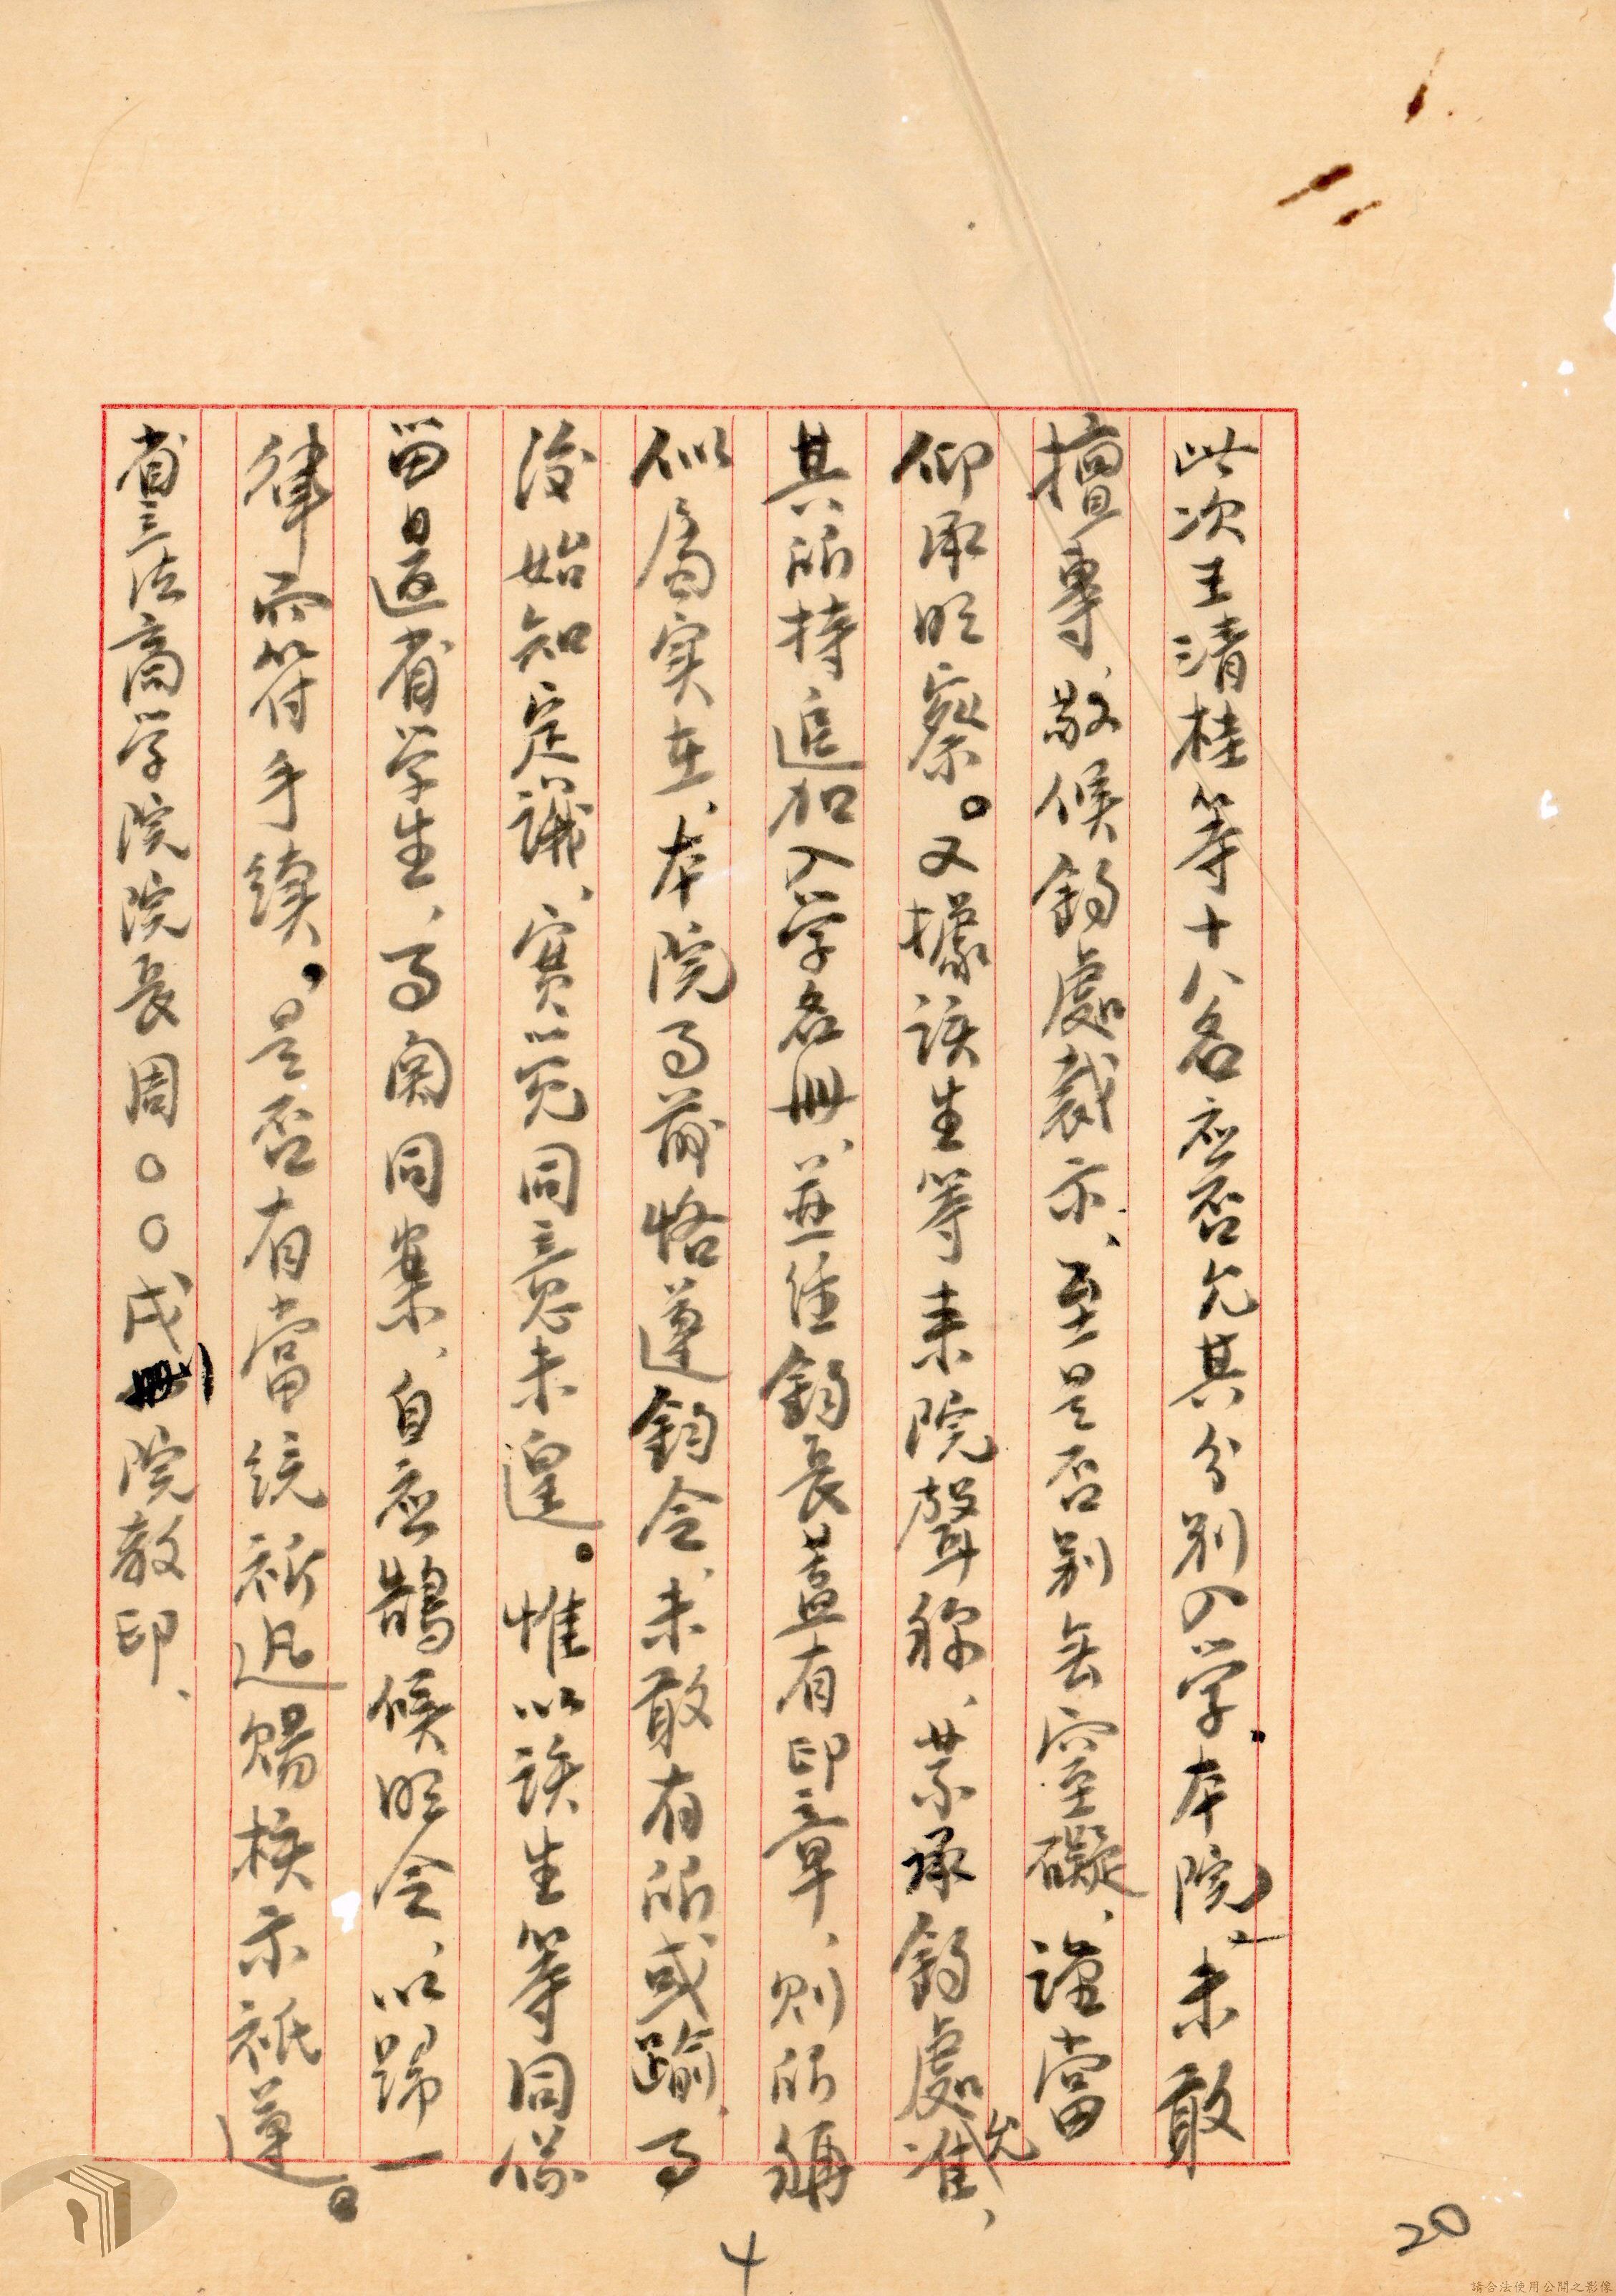 此次王清桂等十八名应否允其分別入学、本院未敢
擅專、敬候鈞處裁示、至是否別無窒礙、謹當
仰承明察。又據該生等来院聲称、業承鈞處允准、
其所持追加入学名冊、並經鈞長蓋有印章、則所稱
似屬实在、本院事前恪遵鈞令、未敢有所或踰、事
後始知定議、實質同意未遑。惟以該生等同係
留日返省学生、事関同案、自应鵠候明令、以歸一
律而符手續。是否有當統祈迅賜核示祇遵。
省立法商学院院長周○○戌 院教印、
4
20
請合法使用公開之影像